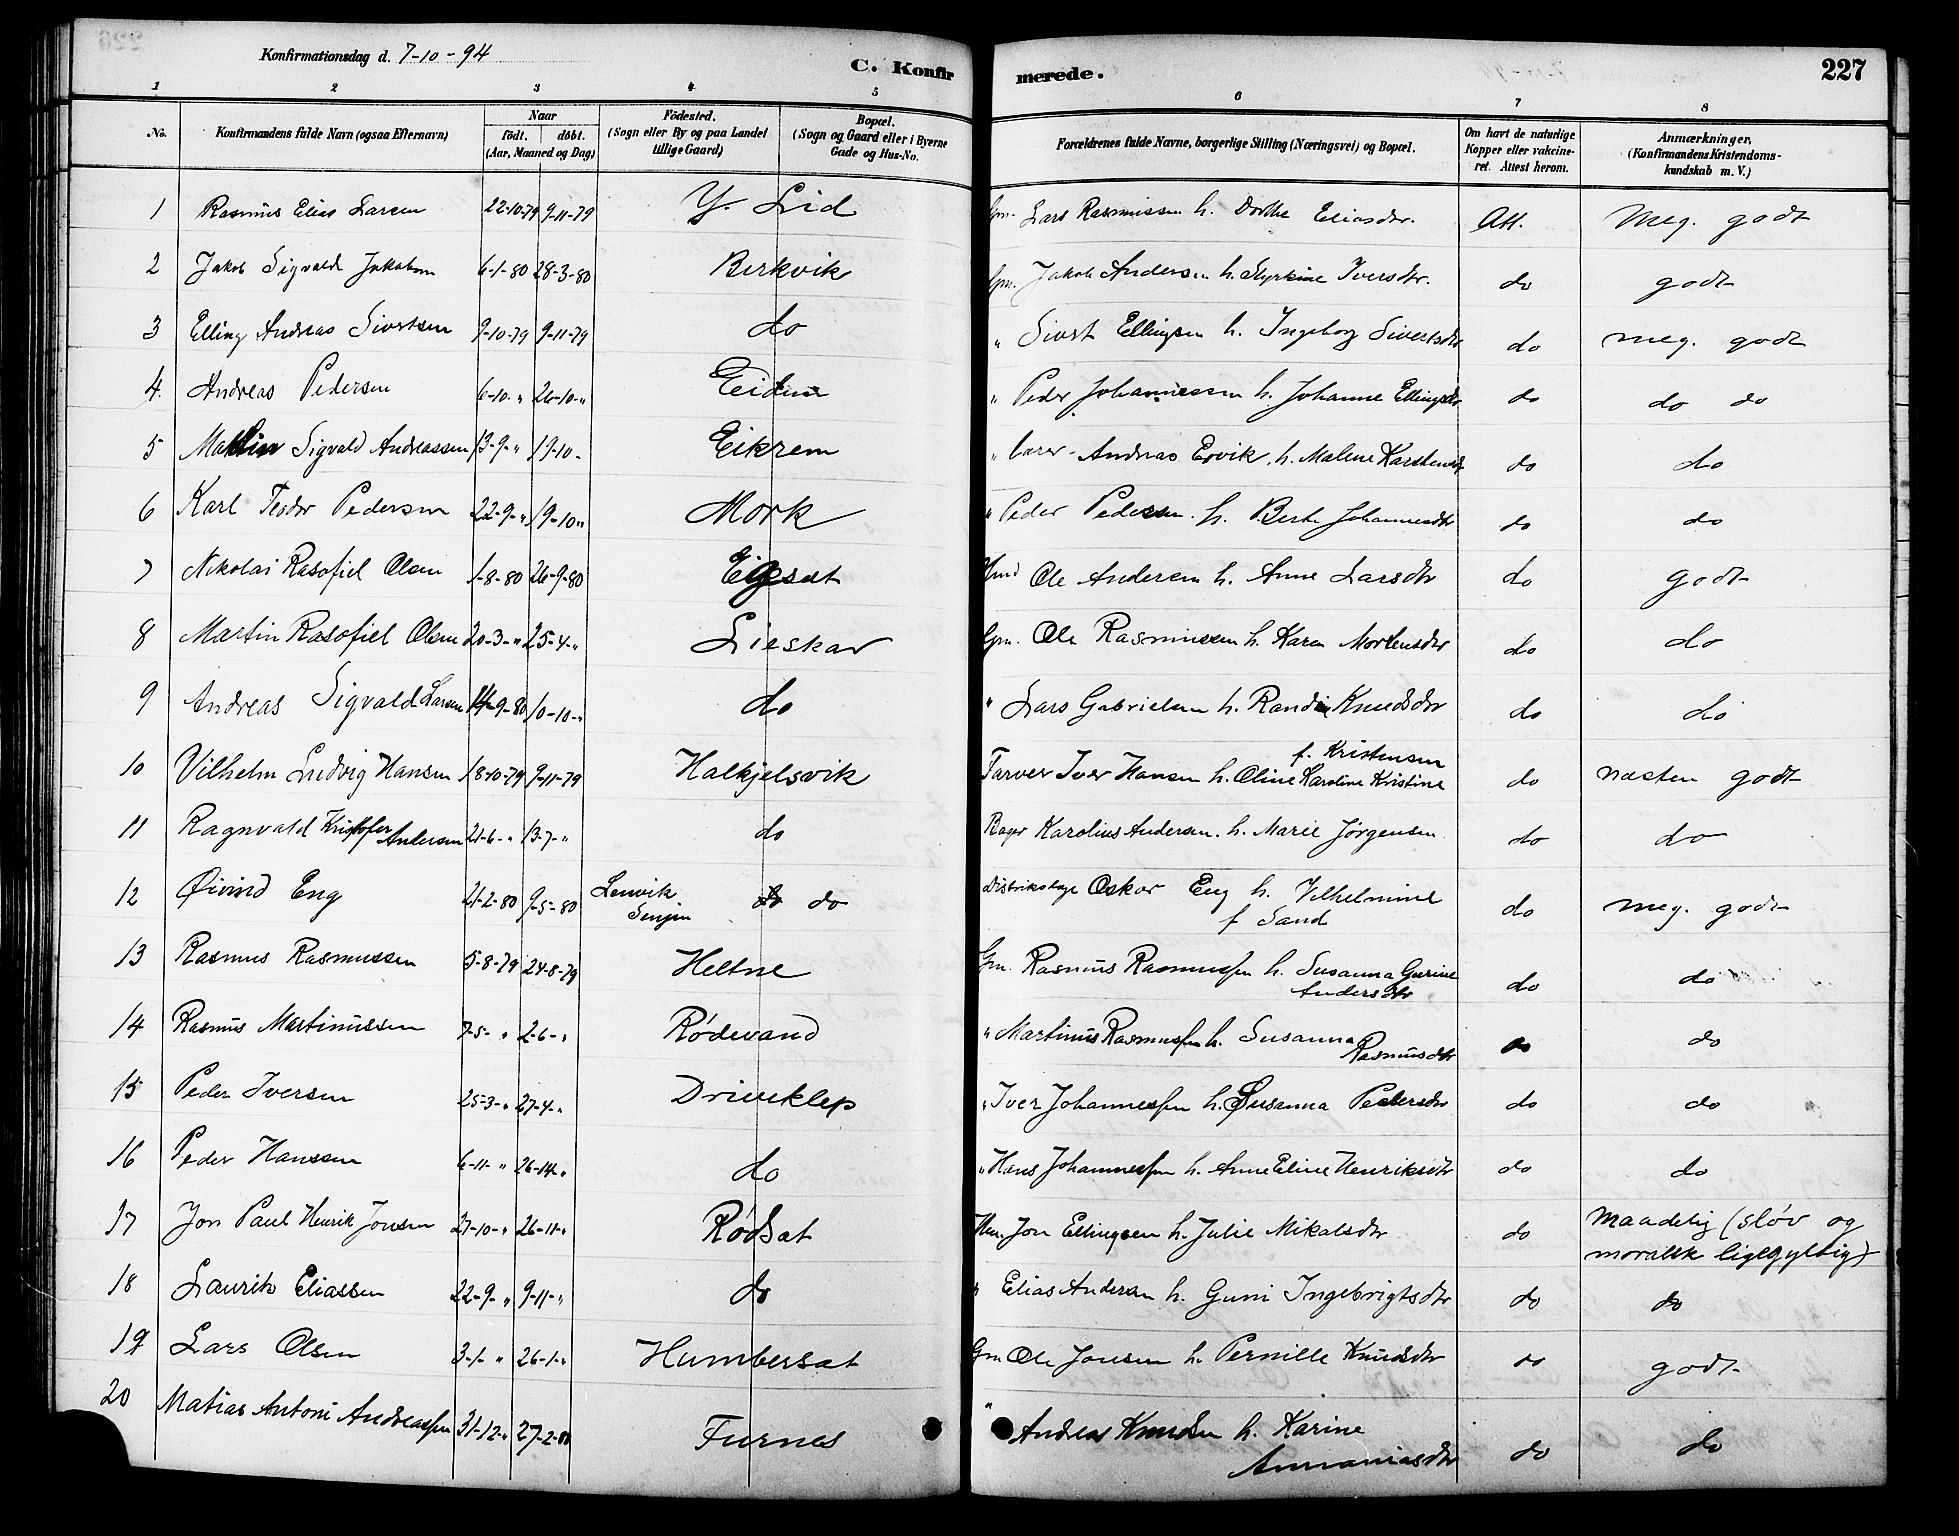 Konfirmationsdag d. 7-10-94
C. Konfirmerede.
227
1 2 3 4 5 6 7 8
No. Konfirmandens fulde Navn (ogsaa Efternavn) Naar födt. döbt. (Aar, Maaned og Dag) Födested. (Sogn eller By og paa Landet tillige Gaard) Bopæl. (Sogn og Gaard eller i Byerne Gade og Hus-No. Forældrenes fulde Navne, borgerlige Stilling (Næringsvei) og Bopæl. Om havt de naturlige Kopper eller vakcineret. Attest herom. Anmærkninger, (Konfirmandens Kristendomskundskab m. V.)
1 Rasmus Elias Larsen 22-10-79 9-11-79 Y. Lid Gm. Lars Rasmussen h. Dorthe Eliasdtr. Att. Meg. godt
2 Jakob Sigvald Jakobsen 6-1-80 28-3-80 Berkvik Gm. Jakob Andersen h. Styrkine Iversdtr. do godt
3 Elling Andreas Sivertsen 9-10-79 9-11-79 do " Sivert Ellingsen h. Ingeborg Sivertsdtr do meg. godt
4. Andreas Pedersen 6-10-" 26-10-" Eidem " Peder Johannessen h. Johanne Ellingsdtr do do do
5 Sigvald Andreassen 13-9-" 19-10- Eikrem " Andreas Ervik, h. Malene Karstensdtr do do
6 Karl Teodor Pedersen 22-9-" 19-10" Mork " Peder Pedersen h. Berte Johannesdtr do do
7 Nikolai Rasofiel Olsen 1-8-80 26-9-80 Eigesæt Hmd Ole Andersen h. Anne Larsdtr do godt
8 Martin Rasofiel Olsen 20-3-" 25-4-" Lieskar Gm. Ole Rasmussen h. Karen Mortensdtr do do
9 Andreas Sigvald Larsen 14-9-80 10-10-" do " Lars Gabrielsen h. Randi Knudsdtr do do
10 Vilhelm Ludvig Hansen 18-10-79 9-11-79 Halkjelsvik Farver Iver Hansen h. Oline Karoline Kristine f. Kristensen do næsten godt
11 Ragnvald Kristofer Andersen 21-6-" 13-7-" do Bager Karolius Andersen h. Marie Jørgensen do do
12 Øivind Eng 21-2-80 9-5-80 Lenvik Senjen do do Distriktslæge Oskar Eng h. Vilhelmine f Sand do meg. godt
13 Rasmus Rasmussen 5-8-79 24-8-79 Heltne Gm. Rasmus Rasmussen h. Susanna Gurine Andersdtr do do
14 Rasmus Martinussen 7-5-" 2-6-" Rødevand " Martinus Rasmussen h. Susanna Rasmusdtr do do
15 Peder Iversen 25-3-" 27-4-" Driveklep " Iver Johannessen h. Susanna Pedersdtr do do
16 Peder Hanssen 6-11-" 26-14-" do " Hans Johannessen h. Anne Eline Henriksdtr do do
17 Jon Paul Henrik Jonsen 27-10-" 26-11-" Rødsæt Hm. Jon Ellingsen h. Julie Mikalsdtr do maadelig (sløv og moralsk ligegyldig)
18 Laurits Eliassen 22-9-" 9-11-" do " Elias Andersen h. Guni Ingebrigtsdtr do do
19 Lars Olsen 3-1-" 26-1-" Humbersæt Gm Ole Jonsen h. Pernille Knudsdtr do godt
20 Matias Antoni Andreassen 31-12-" 27-2-80 Furnes " Andreas Knudsen h. Karine Annaniasdtr do do